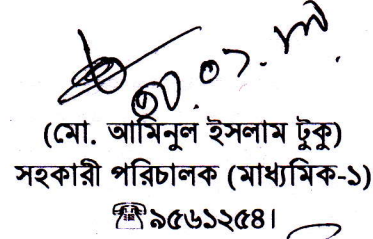 ৩০.০১.
(মো. আমিনুল ইসলাম টুকু)
সহকারী পরিচালক (মাধ্যমিক-১)
☎৯৫৬১২৫৪।